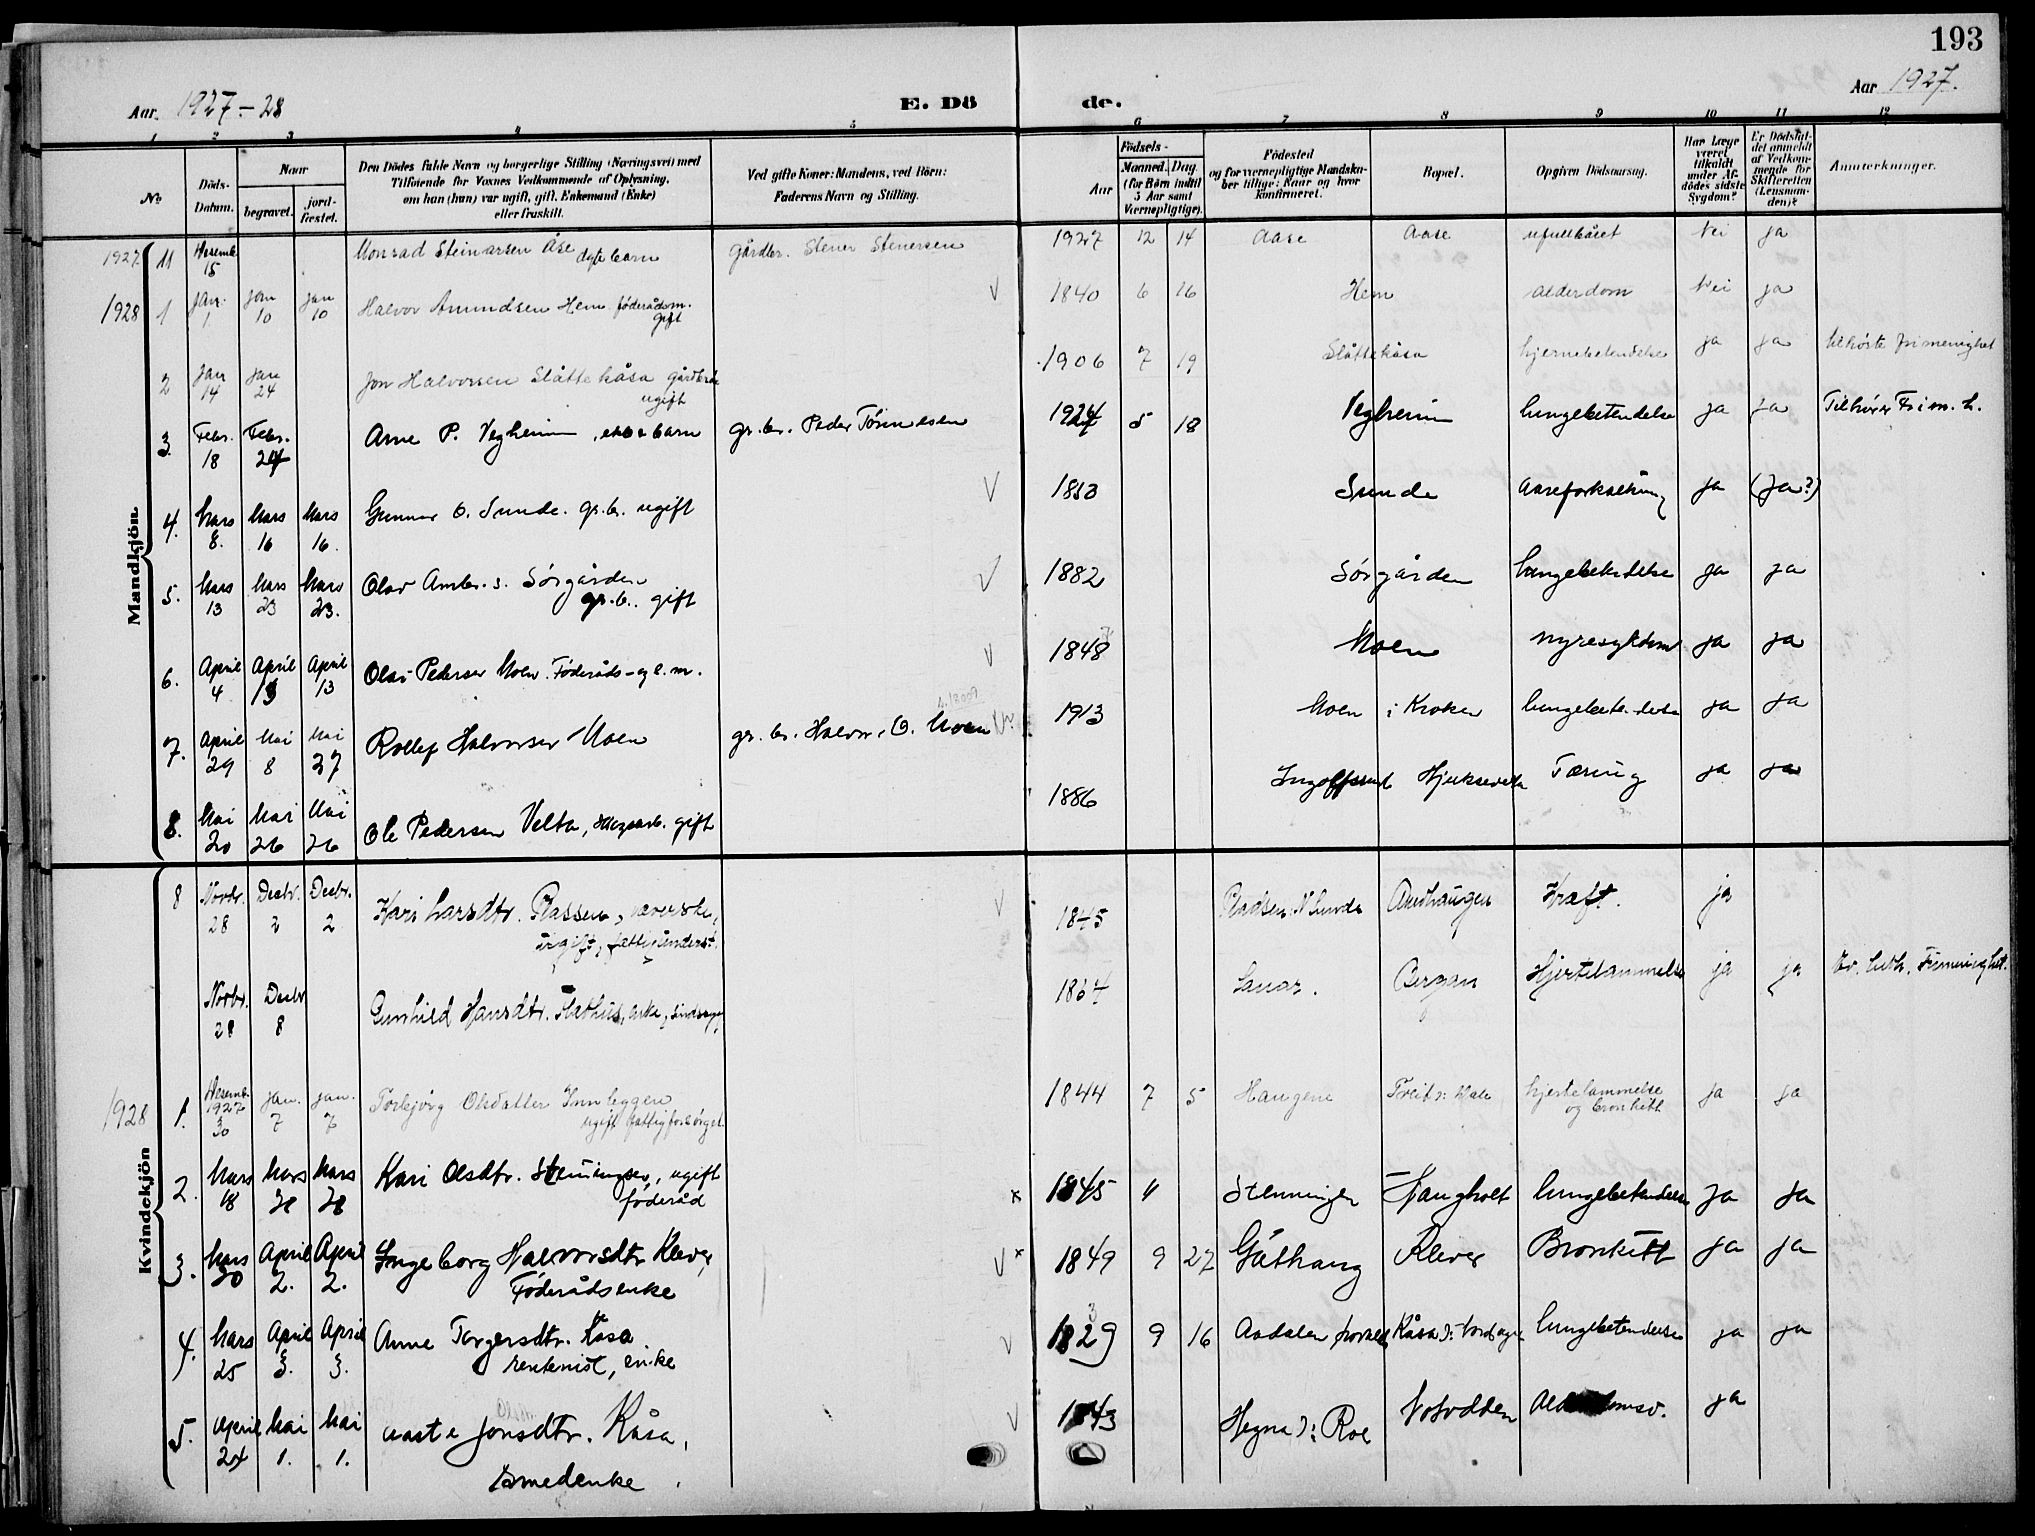 193
Aar. 1927-28
E. Dö
de.
Aar 1927.
1 2 3 4 5 6 7 8 9 10 11 12
No
Döds-Datum.
Naar
begravet.
jord-fæstet.
Den Dödes fulde Navn og borgerlige Stilling (Næringsvei) med
Tilföiende for Voxnes Vedkommende af Oplysning,
om han (hun) var ugift, gift, Enkemand (Enke)
eller fraskilt.
Ved gifte Koner: Mandens, ved Börn:
Faderens Navn og Stilling.
Födsels-
Aar
Maaned. Dag.
(for Börn indtil
5 Aar samt
Værnepligtige).
Födested
og for værnepligtige Mandskaber tillige: Naar og hvor
konfirmeret.
Bopæl.
Opgiven Dödsaarsag.
Har Læge
været
tilkaldt
under Afdödes sidste
Sygdom?
Er Dödsfaldet anmeldt
af Vedkommende for
Skifteretten
(Lensmanden)?
Anmærkninger.
Mandkjön
1927 11 Desemb. 15 Monrad Steinarsen Åse dgf. barn gårdbr. Stener Stenersen 1927 12 14 Aase Aase ufullbåret Nei ja
1928 1 Jan. 1. Jan 10 Jan 10 Halvor Amundsen Hem føderådsm. gift 1840 6 16 Hem alderdom Nei ja
2 Jan 14 Jan 24 Jon Halvorsen Slåttekåsa ugift 1906 7 19 Slåttekåsa hjernebetendelse ja ja tilhørte frimenighet
3 Febr. 18 Febr. 24 Arne P. Vegheim, barn gr.br. Peder Tønnesen 1924 5 18 Vegheim lungebetendelse ja ja Tilhører Frim.h.
4. Mars 8. Mars 16 Mars 16. Gunnar O. Sunde. gr.br. ugift 1853 Sunde Aareforkalkning ja (ja?)
5. Mars 13 Mars 23 Mars 23. Olav Ambr.s. Sørgården gr.b. gift 1882 Sørgården lungebetendelse ja ja
6. April 4 April 13 April 13 Olav Pedersen Moen. Føderåds- og e.m. 1848 Moen nyresykdom ja ja
7. April 29 Mai 8 Mai 27 Rollef Halvorsen Moen gr.br. Halvor O. Moen 1913 Moen i Kroken lungebetendelse ja ja
8. Mai 20 Mai 26 Mai 26 Ole Pedersen Velta, gift 1886 Hjuksevelta Tæring ja ja
Kvindekjön
8 Novbr. 28 Decbr. 2 Decbr. 2 Kari Larsdtr. Plassen, væverske, ugift, fattigunderst. 1845 Pladsen: N. Sunde Kræft. ja
Novbr. 28 Decbr 8 Gunhild Hansdtr. enke, 1864 Sauar. Bergan Hjertelammelse ja ja Ev. luth. Frimenighet.
1928 1. Desemb. 1927 30 Jan. 7 Jan. 7 Torbjørg Olsdatter Innleggen ugift fattigforsørget 1844 7 5 Haugene hjertelammelse og bronkitt ja ja
2. Mars 18 Mars 28 Mars 28 Kari Olsdtr. Stenningen, ugift føderåd x 1845 4 Stenningen Haugholt lungebetendelse ja ja
3. Mars 20 April 2. April 2. Ingeborg Halvorsdtr. Kleiver, Føderådsenke x 1849 9 27 Gåthaug Kleiver Bronkitt ja ja
4. Mars 25 April 3. April 3. Anne Torgersdtr. Kåsa rentenist, enke 1829 9 16 Aadalen Kåsa i: Nordagu lungebetendelse ja ja
5. April 24 Mai 1. Mai 1. Aaste Jonsdtr. Kåsa, Smedenke. 1843 Hegna i: Roe Notodden ja